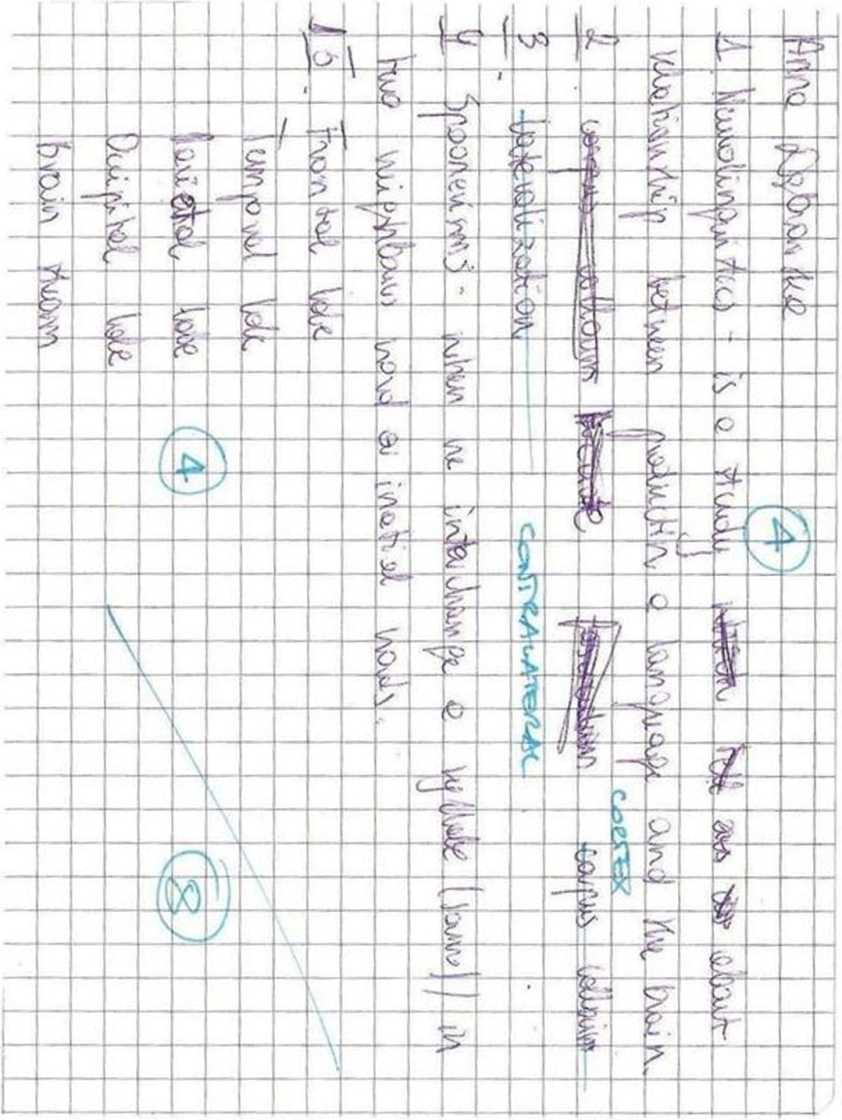 Anna
④
1. Neurolinguistics - is a study about
relationship between producting a language and the brain.
CORTEX
2. corpus callosum
3. lateralization CONTRALATERAL
4. Spoonerisms - when we interchange a syllable (sound) in
two neighbour word or inatial words.
5. Frontal lobe
Temporal lobe
Parietal lobe
④
Occipital lobe
Brain steam
⑧